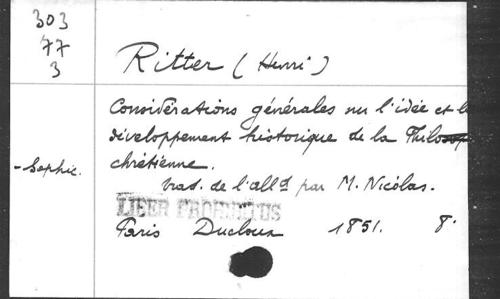 303
77
3
Ritter (Henri)
Considérations générales sur l'idée et le
développement historique de la Philosop
-Sophie.
chrétienne.
trad. de l'alld par M. Nicolas.
LIBER PROHIBITUS
Paris Ducloux 1851. 8°